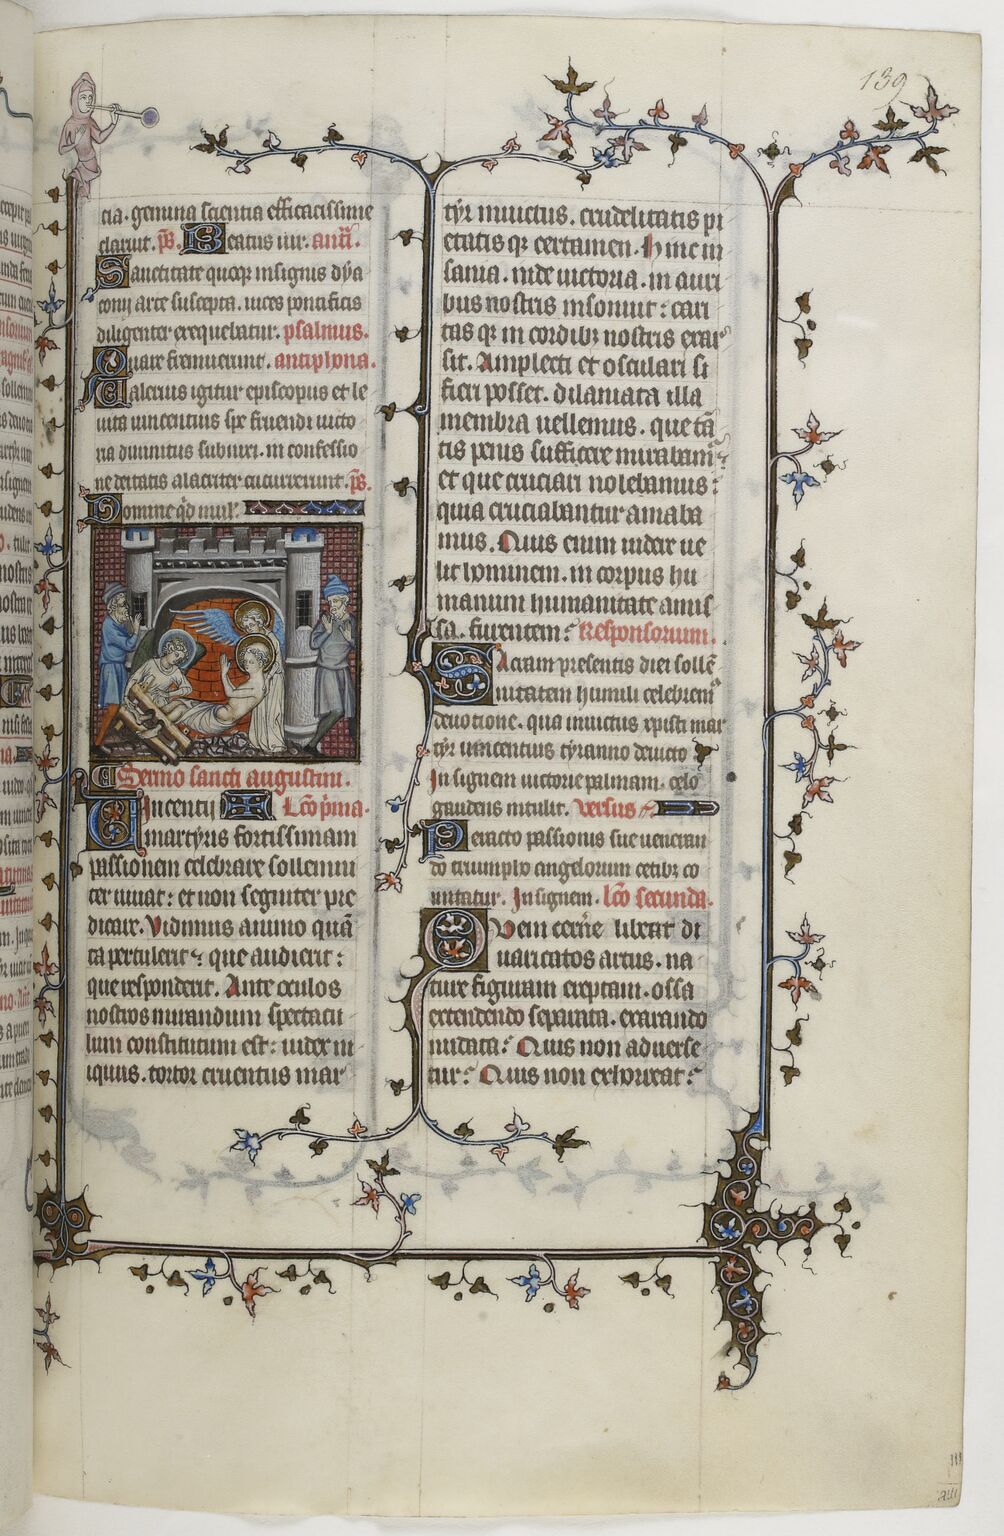 139
cia. genuina scientia efficacissime
claruit. p̄s. Beatus uir. anā.
Sanctitate quoqꝫ insignis dya
conii arce suscepta. uices pontificis
diligenter exequebatur. psalmus.
Quare fremuerunt. antiphona.
Ualerius igitur episcopus et le
uita uincentius spe fruendi uicto
ria diuinitus subnixi. in confessio
ne deitatis alacriter cucurrerunt. p̄s.
Domine qͥd mul̄.
Sermo sancti augustini.
Uincentii Lc̄o p̄ma.
martyris fortissimam
passionem celebrare sollemni
ter iuuat: et non segniter pre
dicare. Vidimus animo quā
ta pertulerit: que audierit:
que responderit. Ante oculos
nostros mirandum spectacu
lum constitutum est: iudex in
iquus. tortor cruentus mar
tyr inuictus. crudelitatis pi
etatis qꝫ certamen. Hinc in
sania. inde uictoria. in auri
bus nostris insonuit: cari
tas qꝫ in cordibꝫ nostris exar
sit. Amplecti et osculari si
fieri posset. dilaniata illa
membra uellemus. que tā
tis penis sufficere mirabamͬ:
et que cruciari nolebamus:
quia cruciabantur amaba
mus. Quis enim uidere ue
lit hominem. in corpus hu
manum humanitate amis
sa. furentem: Responsorium.
Sacram presentis diei sollē
nitatem humili celebremꝰ
deuotione. qua inuictus xpisti mar
tyr uincentius tyranno deuicto
Insignem uictorie palmam. celo
gaudens intulit. versus
Peracto passionis sue ueneran
do triumpho angelorum cetibꝫ co
mitatur. Insignem. lc̄o secunda.
Quem cerne̅ libeat di
uaricatos artus. na
ture figuram ereptam. ossa
extendendo separata. exarando
nudata: Quis non aduerse
tur: Quis non exhorreat: